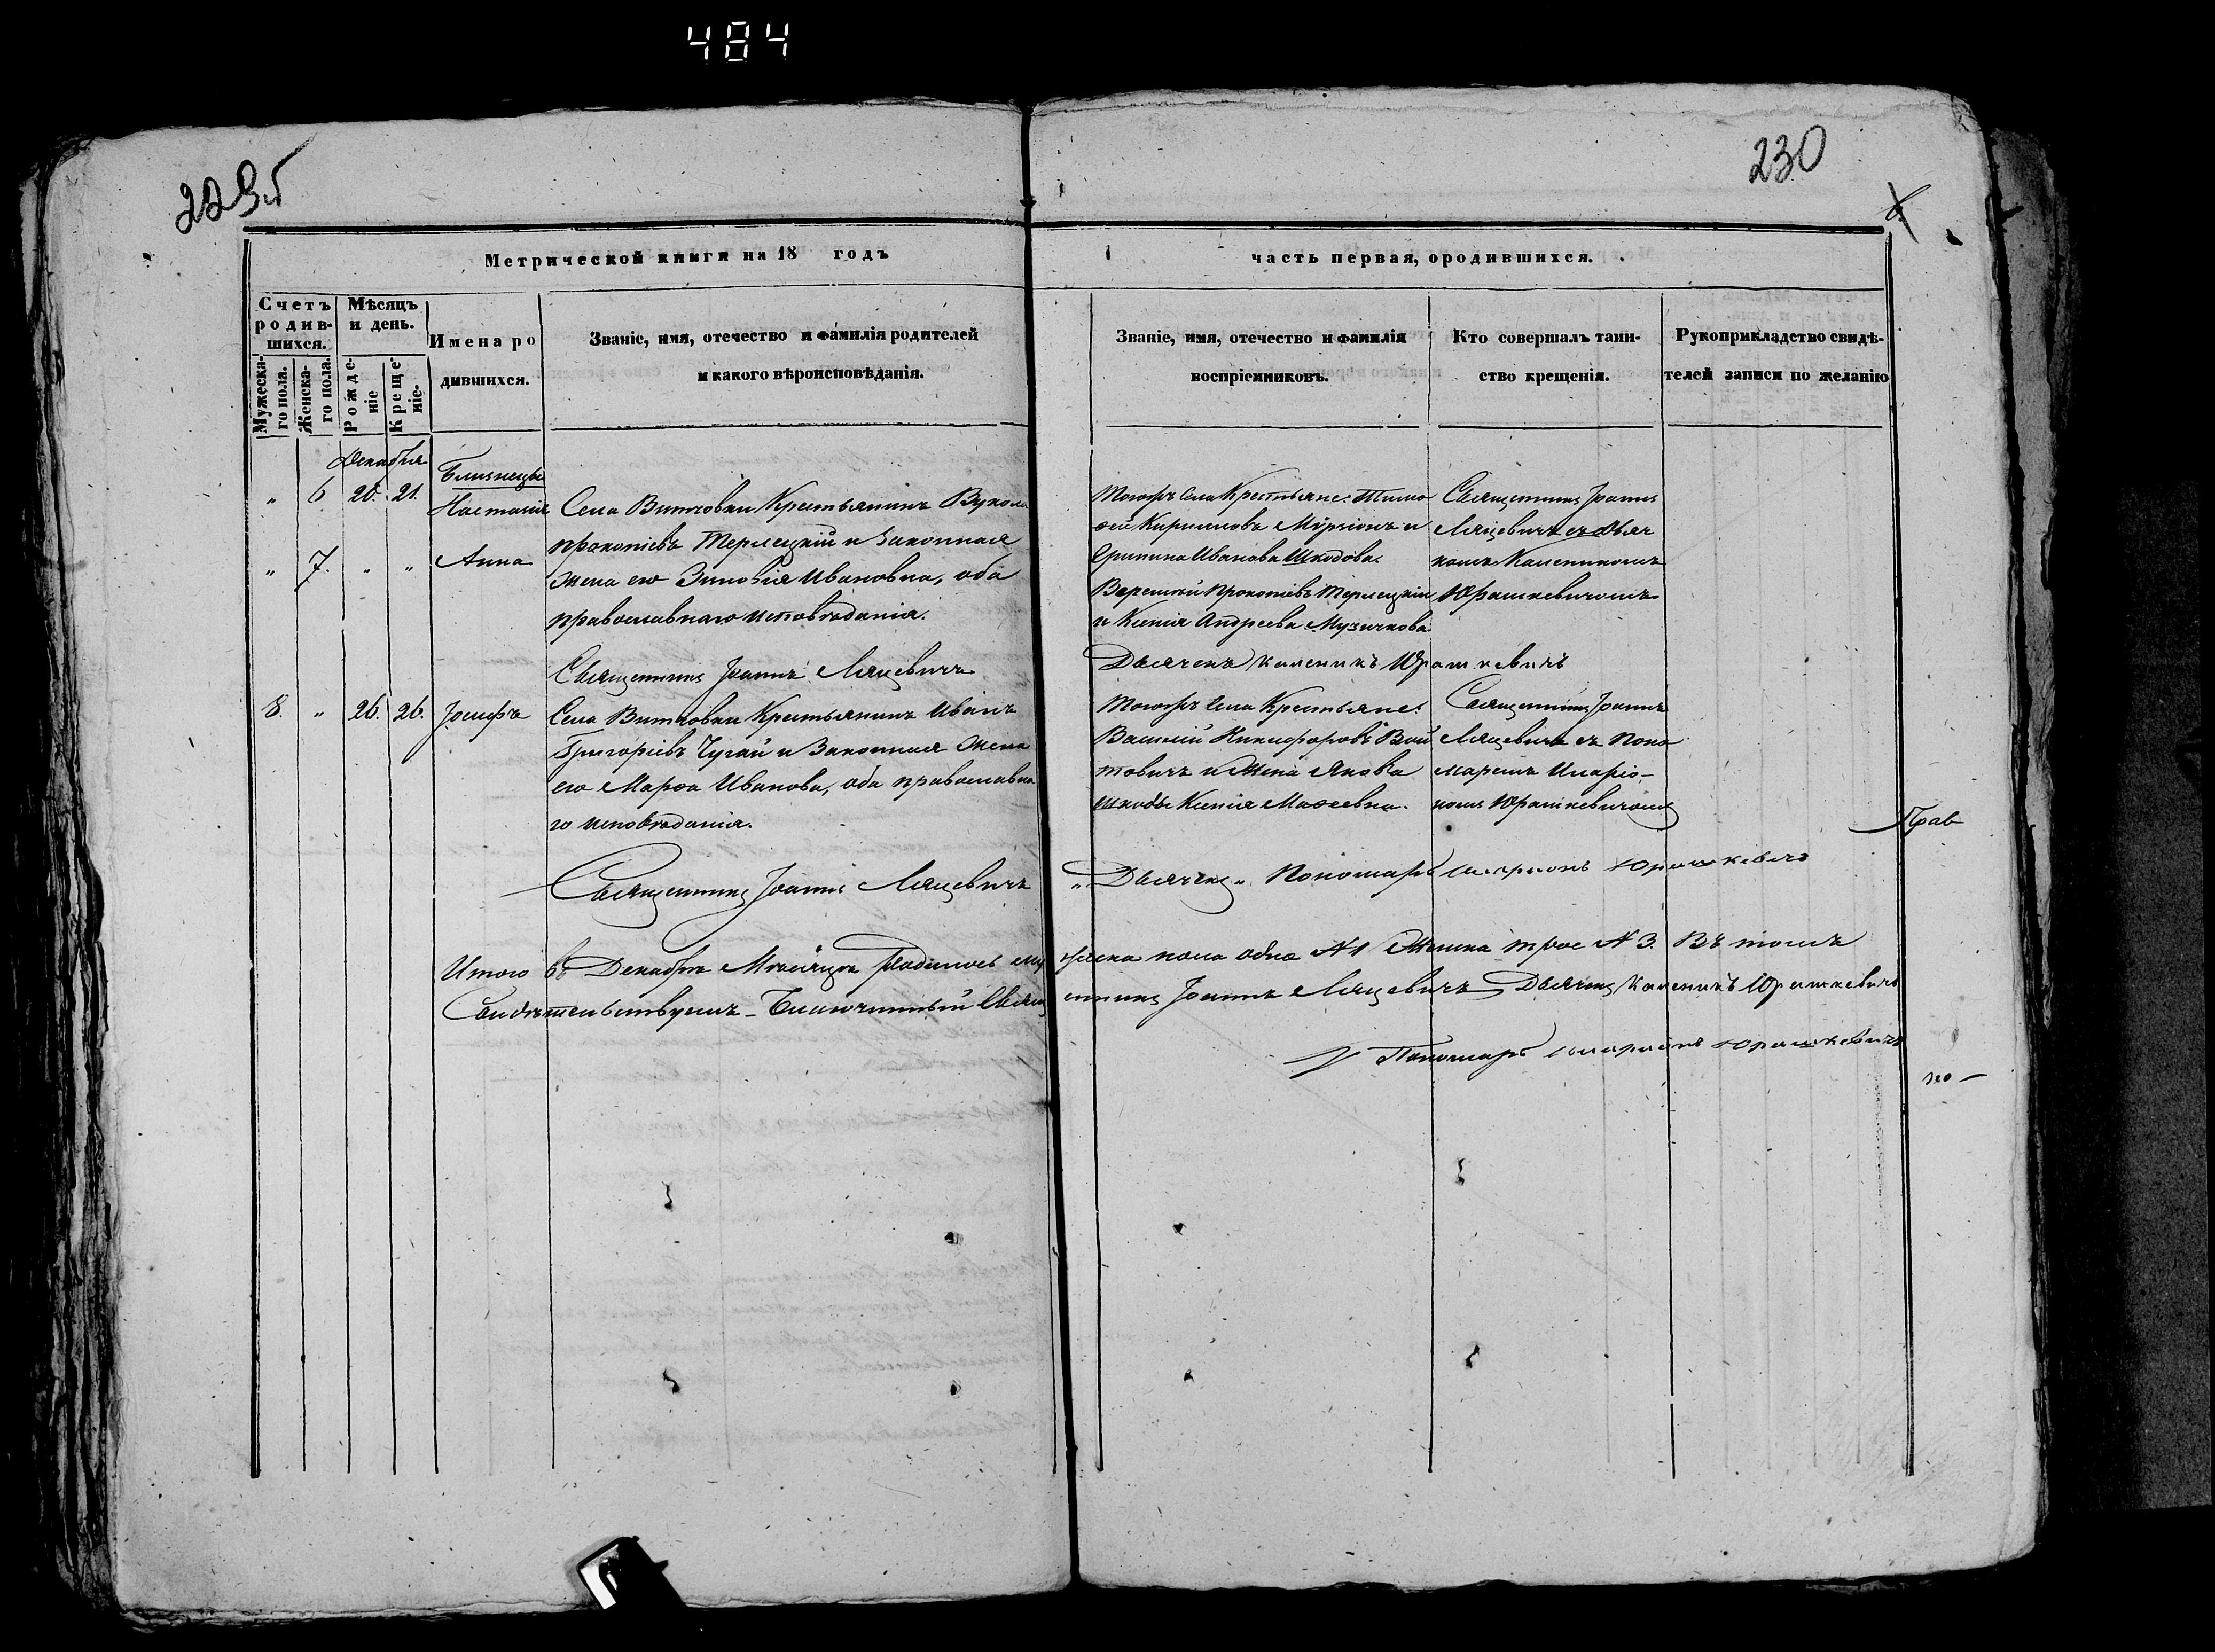 484
229б
230
Метрической книги на 18 годъ
часть первая, ородившихся.
Счетъ родив-шихся.
Мужеска-го пола.
Женска-го пола.
Мѣсяцъ и день.
Рожде-ніе
Креще-ніе.
Имена ро
дившихся.
Званіе, имя, отечество и фамилія родителей
и какого вѣроисповѣданія.
Званіе, имя, отечество и фамилія
воспріемниковъ.
Кто совершалъ таин-
ство крещенія.
Рукоприкладство свидѣ-
телей записи по желанію
Декабря
Близнецы
" 6 20. 21. Настасія
" 7. " " Анна
Села Витковки Крестьянинъ Вукола
Прокопіевъ Терлецкій и Законная
жена его Зиновія Ивановна, оба
православнаго исповѣданія.
Тогожъ Села Крестьяне: Тимо
ѳей Кирилловъ и
Иванова Шкодова.
Прокопіевъ Терлецкій
и Ксенія Андреева Музичкова
Священникъ Іоаннъ
Ляцевичъ съ Дьяч
комъ Каленикомъ
Юрашкевичомъ
Священникъ Іоаннъ Ляцевичъ
Дьячекъ Каленикъ Юрашкевичъ
8. " 26. 26. Іосифъ
Села Витковки Крестьянинъ Иванъ
Григоріевъ Чугай и Законная Жена
его Марѳа Иванова, оба православна
го исповѣданія.
Тогожъ Села Крестьяне:
Василій Никифоровъ Вой
товичъ и Жена Якова
Шкоды Ксенія Маѳеевна.
Священникъ Іоаннъ
Ляцевичъ съ Поно
маремъ Иларіо-
номъ Юрашкевичомъ
Прав
Священникъ Іоаннъ Ляцевичъ
"Дьячекъ" Пономарь Иларіонъ Юрашкевичъ
Итого въ Декабрѣ Мѣсяцѣ Родилось му жеска пола одно N 1 Женска трое N 3. Въ томъ
Свидѣтельствуемъ – Благочинный Свящ енникъ Іоаннъ Ляцевичъ Дьячекъ Каленикъ Юрашкевичъ
Пономарь Иларіонъ Юрашкевичъ
но –